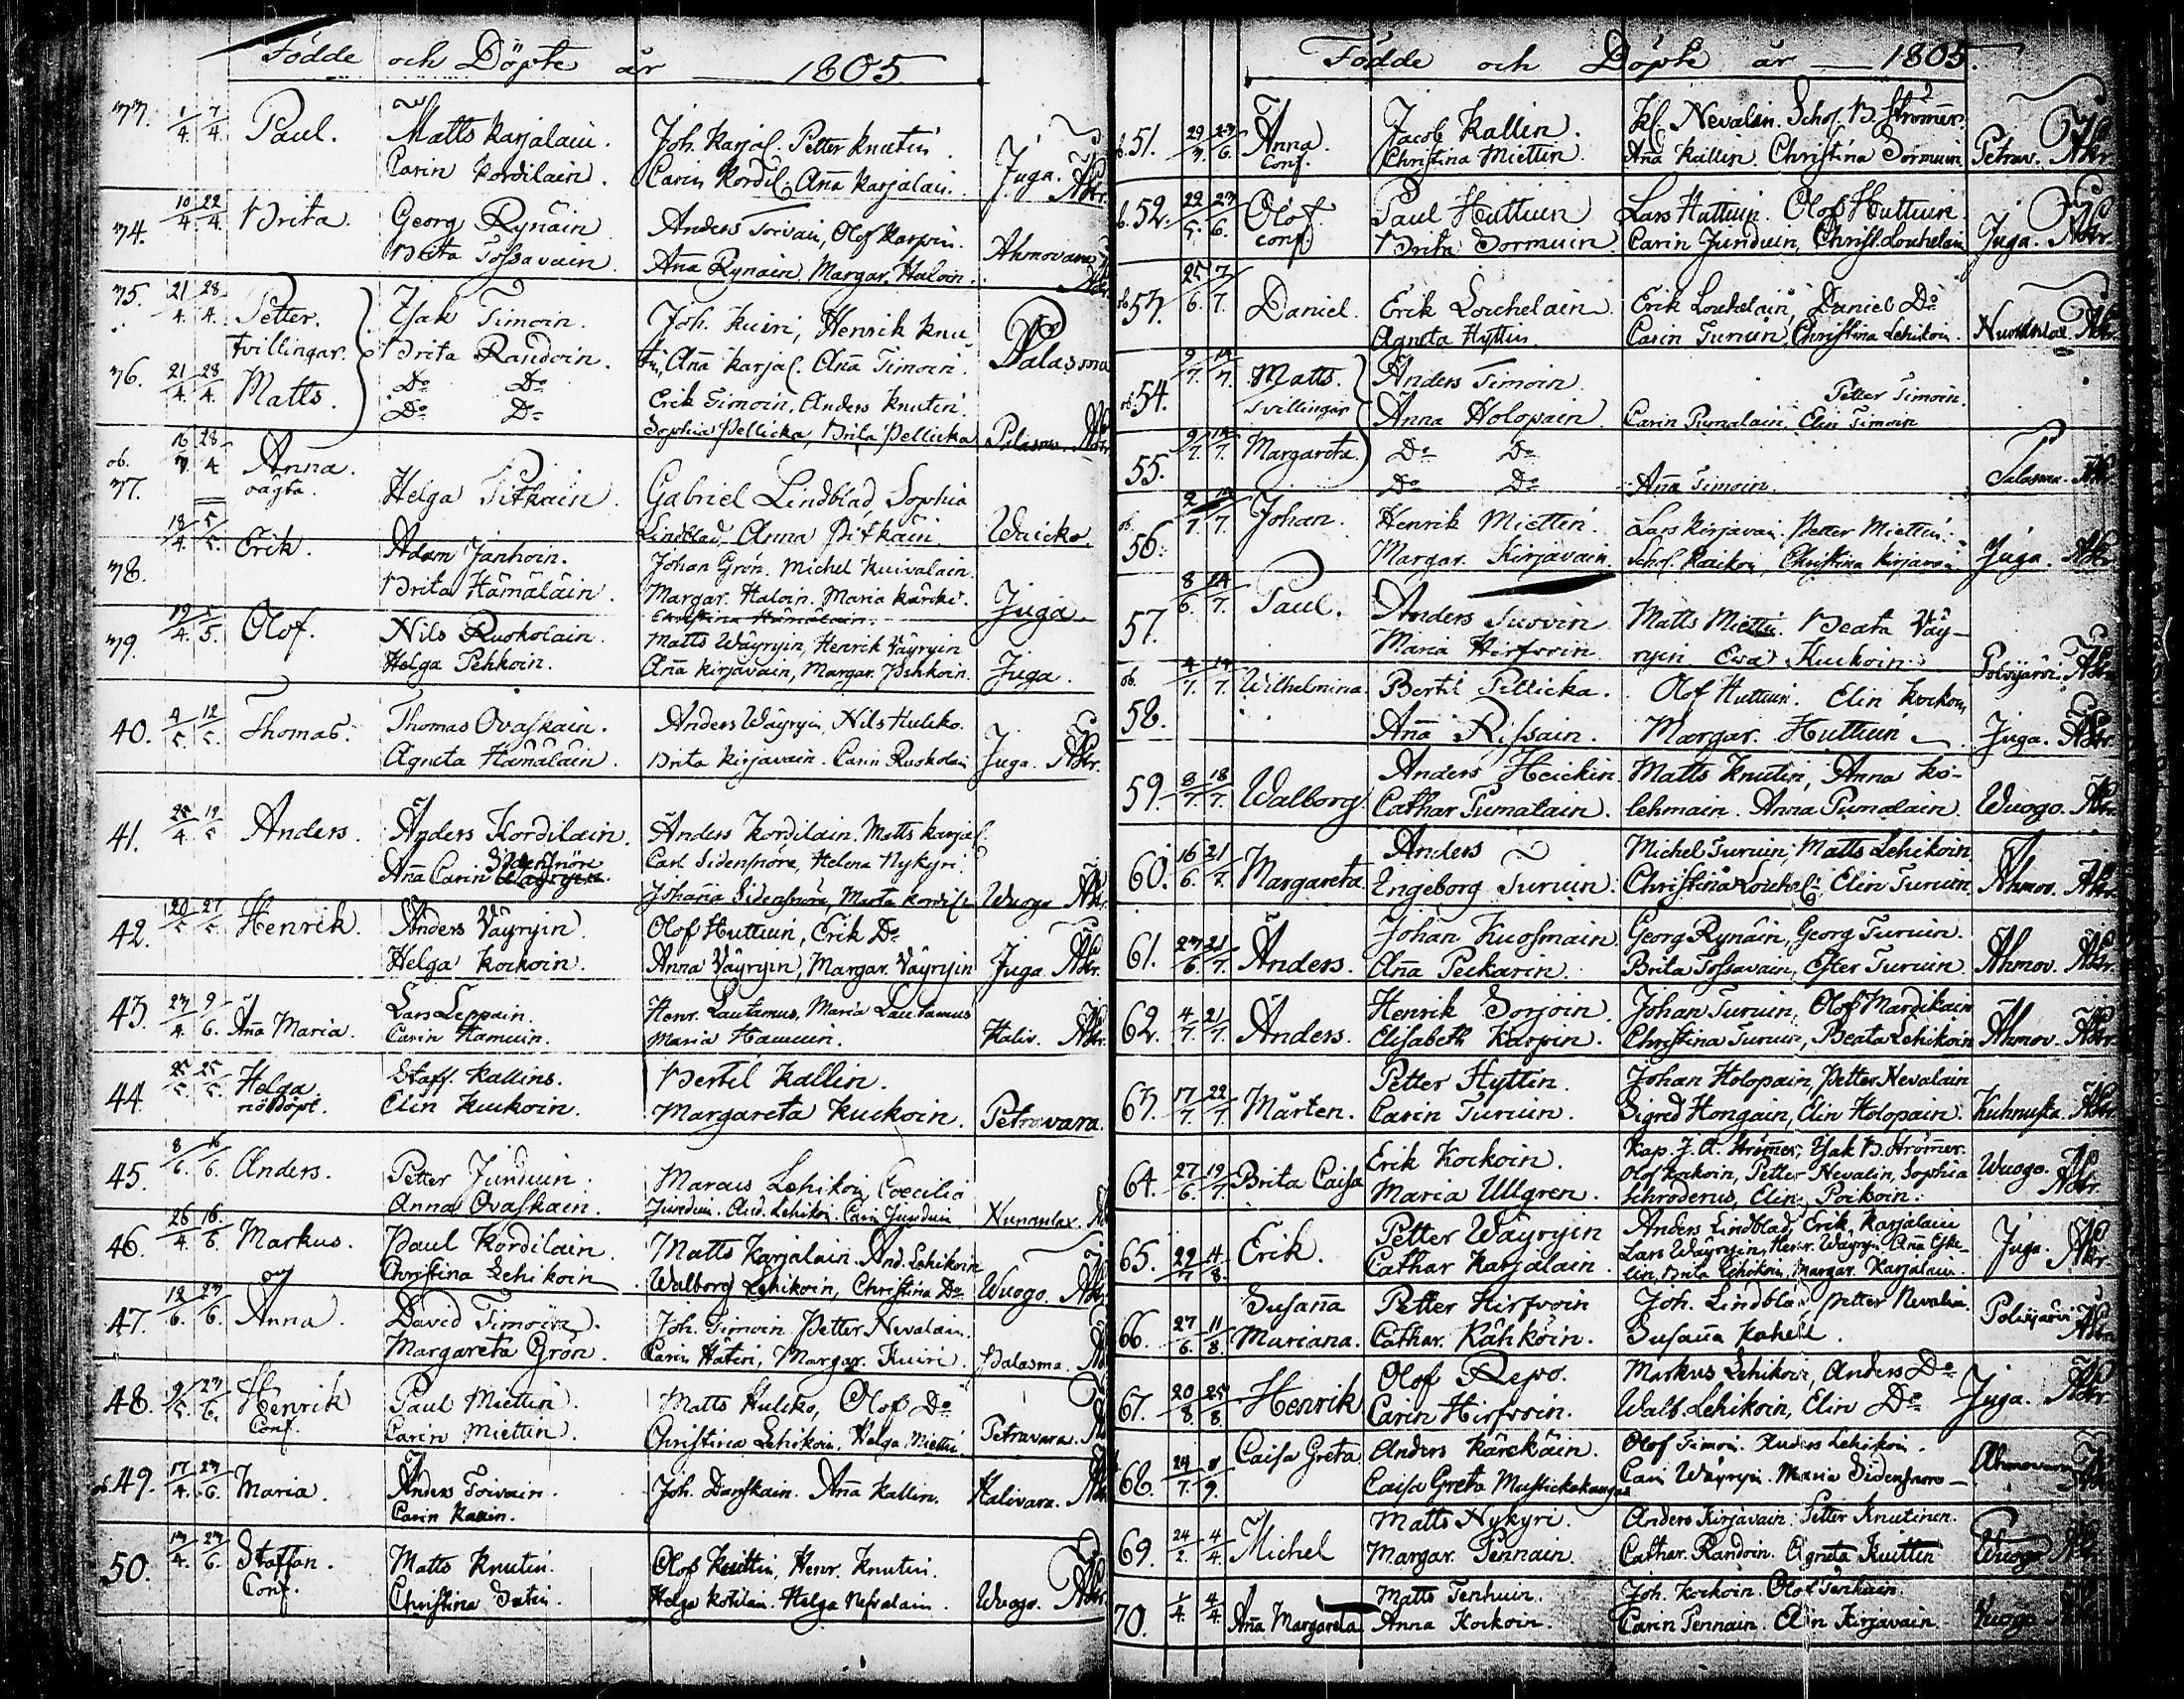 Födde och Döpte år 1805.
33. 1/4. 7/4. Paul. Matts Karjalain. Joh. Karjal. Petter Knutin.
Carin Kordilain. Carin Kordil. Aña Karjalain. Juga.
34. 10/4 22/4. Brita. Georg Rynäin Anders Toivain, Olof Karpin.
Brita Tossavain. Aña Rynäin, Margar. Haloin. Ahmovara
35. 21/4. 28/4. Petter. Isak Timoin. Joh. Kuiri, Henrik Knu-
Tvillingar. Brita Randoin. tin, Aña Karjal. Aña Timoin. Palasma
36. 21/4 28/4. Matts. Do Do Erik Timoin, Anders Knutin.
Do Do Sophia Pellicka, Brita Pellicka Palasma
ob. 37. 28/4 Anna. oägta. Helga Pitkäin. Gabriel Lindblad, Sophia
Lindblad, Anna Pitkäin. Waicko.
38. 18/4. 5/5. Erik. Adam Janhoin. Johan Grön. Michel Kuivalain.
Brita Hämäläin. Margar. Haloin. Maria Kärcki. Juga.
Christina Hämäläin.
39. 19/4. 5/5. Olof. Nils Ruokolain. Matts Wäyryin, Henrik Väyryin
Helga Pehkoin. Aña Kirjavain, Margar. Pehkoin. Juga.
40. 4/5. 12/5. Thomas. Thomas Ovaskain. Anders Wäyryin, Nils Hulcko.
Agneta Hämäläin. Brita Kirjavain. Carin Ruokolain Juga.
41. 25/4 12/5 Anders. Anders Kordilain. Anders Kordilain. Matts Karjal.
Sidensnöre Carl Sidensnöre, Helena Nykyri.
Aña Carin Wäyryin. Johaña Sidensnöre, Marta Kordil. Wuogo
42. 20/5 27/5. Henrik. Anders Väyryin. Olof Huttuin, Erik Do
Helga Kockoin. Anna Väyryin, Margar. Väyryin Juga.
43. 23/4 9/6. Aña Maria. Lars Leppain. Henr. Lautamus, Maria Lautamus
Carin Hamuin. Maria Hamuin. Haliv.
44. 25/5. 25/5. Helga nödöpt. Staff. Kallins. Bertil Kallin.
Elin Kuckoin. Margareta Kuckoin. Petravara.
45. 8/6. 16/6. Anders. Petter Junduin. Marcus Lehikoi, Coecilia
Anna Ovaskain. Junduin. And. Lehikoi. Carin Junduin Nunanlax.
46. 26/4. 16/6. Markus. Paul Kordilain. Matts Karjalain. And. Lehikoin
Christina Lehikoin Walborg Lehikoin, Christina Do Wuogo.
47. 12/6. 23/6. Anna. David Timoin. Joh. Timoin. Petter Nevalain.
Margareta Grön. Carin Hatin, Margar. Kuiri. Palasma.
48. 9/5. 23/6. Henrik Conf. Paul Miettin. Matts Hulcko, Olof Do
Carin Miettin. Christina Lehikoin, Helga Mietti. Petravara.
ob. 49. 17/4. 23/6. Maria. Anders Toivain. Joh. Danskain. Aña Kallin. Halivara.
Carin Kauin.
50. 13/4. 23/6. Staffan. Conf. Matts Knutin. Olof Knuttin, Henr. Knutin.
Christina Satin. Helga Kotilain. Helga Nevalain. Wuogo.
Födde och Döpte år 1805.
51. 23/6. Anna. Conf. Jacob Kallin. Kl. Nevalin. Schol. B. Strömer
Christina Miettin. Aña Kallin. Christina Sormuin Petrav.
52. 22/5. 23/6. Olof. conf. Paul Huttuin Lars Huttuin. Olof Huttuin.
Brita Sormuin Carin Junduin, Christ. Louhelain Juga.
ob 53. 25/6. 7/7. Daniel. Erik Louhelain Erik Louhelain, Daniel Do
Agneta Hyttin Carin Turuin, Christina Lehikoin.
ob. 54. 9/7. 14/7. Matts. Anders Timoin. Petter Timoin.
Tvillingar Anna Holopain. Carin Pumalain, Elin Timoin
55. 9/7. 14/7. Margareta. Do Do
Do Do Aña Timoin. Palasma.
ob. 56. 14/7. Johan. Henrik Miettin. Lars Kirjavai. Petter Miettin.
Margar. Kirjavain. Schol. Raikoi, Christina Kirjavain Juga.
57. 8/6. 14/7. Paul. Anders Suovin Matts Miettin. Beata Väy-
Maria Hirfvoin ryin Ewa Kuckoin. Polvijärvi.
ob. 58. 4/7. 14/7. Wilhelmina. Bertil Pellicka. Olof Huttuin. Elin Kockoin,
Aña Rissain. Margar. Huttuin. Juga.
59. 8/7. 18/7. Walborg. Anders Heickin Matts Knutin, Anna Ko-
Cathar Pumalain. lehmain. Anna Pumalain. Wuogo.
60. 16/6. 21/7. Margareta Anders Michel Turuin, Matts Lehikoin
Ingeborg Turuin. Christina Louhel. Elin Turuin. Ahmov.
61. 23/6. 21/7. Anders. Johan Kuosmain. Georg Rynäin, Georg Turuin.
Aña Peckarin. Brita Tossavain, Ester Turuin. Ahmov.
62. 4/7. 21/7. Anders. Henrik Sorjoin. Johan Turuin, Olof Mardikain
Elisabeth Karpin. Christina Turuin, Beata Lehikoin Ahmov.
63. 17/7. 22/7. Mårten. Petter Hyttin. Johan Holopain, Petter Nevalain
Carin Turuin. Sigred Hongain, Elin Holopain. Kuhnusta.
64. 27/6. 19/7. Brita Caisa Erik Kockoin. Kap. J. A. Strömer, Isak B. Strömer.
Maria Ullgren. Olof Kockoin, Petter Nevalin, Sophia Wuogo.
Schroderus, Elin Poikoin.
65. 22/7 4/8. Erik. Petter Wäyryin Anders Lindblad, Erik Karjalain
Cathar Karjalain. Lars Wäyryin, Henr. Wäyryin Aña Eske- Juga.
lin, Brita Lehikoin, Margar. Karjalain.
66. 27/6. 11/8. Susaña Mariana. Petter Hirfvoin Joh. Lindblad, Petter Nevalin.
Cathar. Kähköin. Susaña Kahell. Polvijärvi
67. 20/8. 25/8 Henrik Olof Repo. Markus Lehikoin, Anders Do
Carin Hirfvoin. Walb. Lehikoin, Elin Do Juga.
68. 24/7. 8/9. Caisa Greta Anders Kärckäin. Olof Timoin. Anders Lehikoin.
Caisa Greta Mustickakangas Carin Wäyryin. Maria Sidensnöre Ahmovara
69. 24/2. 4/4. Michel Matts Nykyri. Anders Kirjavain. Petter Knutinen.
Margar. Tennain. Cathar. Randoin. Agneta Kuittin Wuogo
70. 1/4. 4/4. Aña Margareta Matts Tenhuin. Joh. Kockoin. Olof Tenhuin.
Anna Kockoin. Carin Tennain. Elin Kirjavain. Wuogo